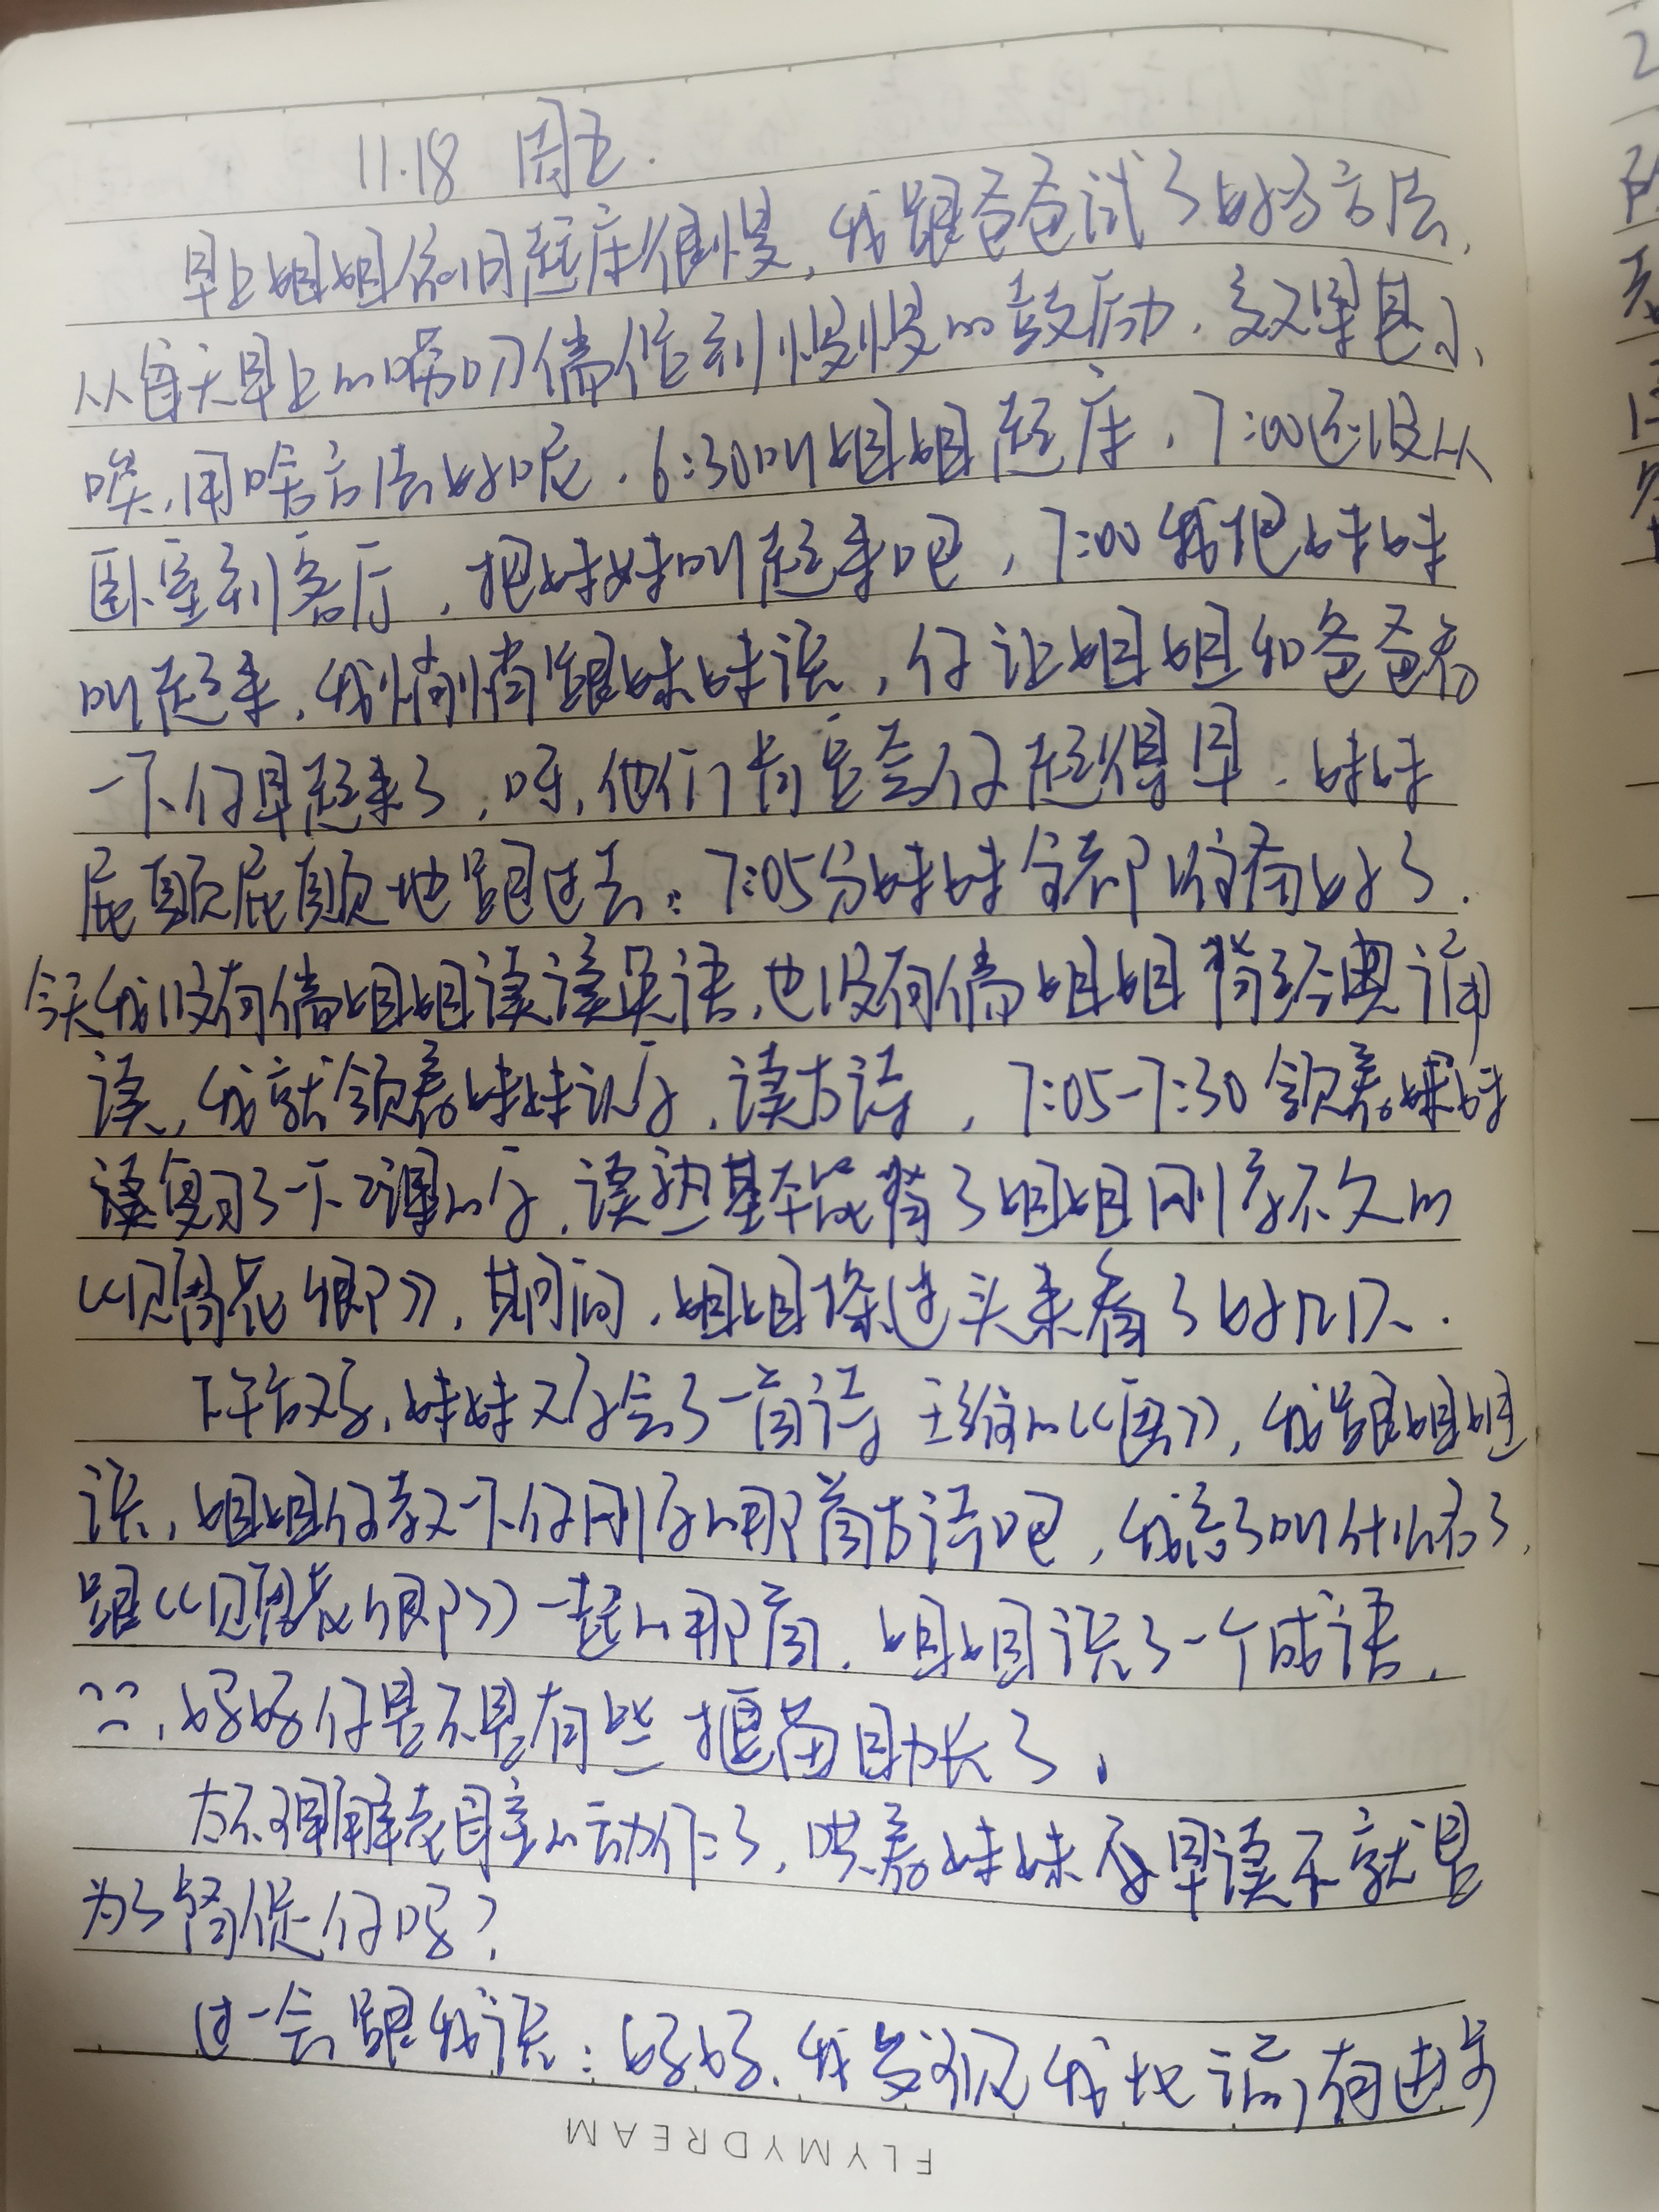 11.18 周五.
早上姐姐依旧起床很慢, 我跟爸爸试了好多方法,
从每天早上的唠叨催促到慢慢的鼓励, 效果甚小,
唉, 用啥方法好呢. 6:30叫姐姐起床, 7:00还没从
卧室到客厅, 把妹妹叫起来吧, 7:00我把妹妹
叫起来, 我悄悄跟妹妹说, 你让姐姐和爸爸看
一下你早起来了, 呀, 他们肯定会你起得早. 妹妹
屁颠屁颠地跑过去. 7:05分妹妹全都收拾好了.
今天我没有催姐姐读读英语, 也没有催姐姐背经典诵
读, 我就领着妹妹认字, 读古诗, 7:05-7:30 领着妹妹
读复习了一下2课的字, 读熟基本能背了姐姐刚学不久的
《囚歌》, 期间, 姐姐探过头来看了好几次.
下午放学, 妹妹又学会了一首诗 王维的《画》, 我跟姐姐
说, 姐姐你教一下你刚学的那首古诗吧, 我忘了叫什么名了,
跟 一起的那首. 姐姐说了一个成语,
妈妈你是不是有些揠苗助长了.
太不理解老母亲的动作了, 哄着妹妹在早读不就是
为了督促你吗?
过一会跟我说: 妈妈, 我发现我地 有进步
FLYMYDREAM